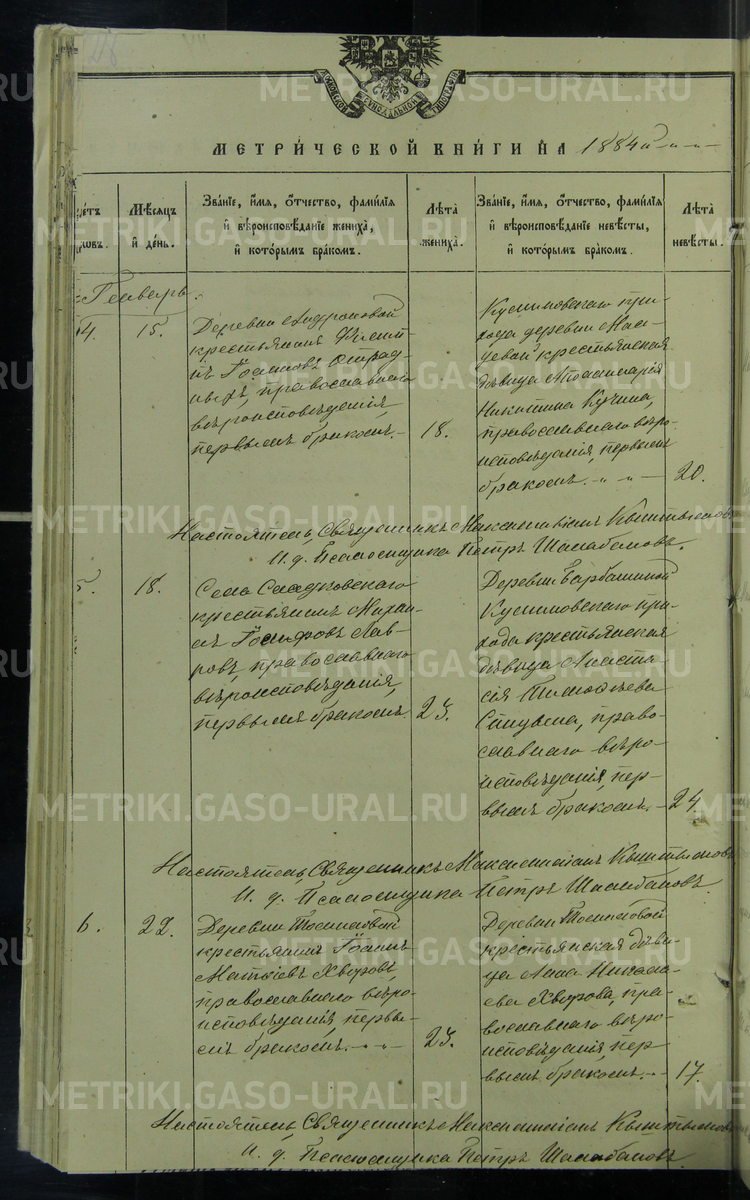 МЕТРИ́ЧЕСКОЙ КНИ́ГИ НА 1884й
Мѣсяцъ и день.
Зва́ніе, и́мя, о́тчество, фами́лія и вѣроисповѣ́даніе жениха̀, и кото́рымъ бра́комъ.
Лѣта̀ жениха̀.
Зва́ніе, и́мя, о́тчество, фами́лія и вѣроисповѣ́даніе невѣ́сты, и кото́рымъ бра́комъ.
Лѣта̀ невѣ́сты.
Генварь.
4.
15.
Деревни
крестьянинъ
Іоанновъ
православнаго
вѣроисповѣданія,
первымъ бракомъ.
18.
Куминовскаго при-
хода деревни
крестьянская
дѣвица Аполинарія
Никитина Кучина,
православнаго вѣро-
исповѣданія, первымъ
бракомъ.
20.
Настоятель, Священникъ Максимиліанъ Кыштымовъ
И. д. Псаломщика Петръ Шалабановъ.
5.
18.
Села Сладковскаго
крестьянинъ Михаи-
лъ Іосифовъ Лав-
ровъ, православнаго
вѣроисповѣданія,
первымъ бракомъ.
23.
Деревни Барбашиной
Куминовскаго при-
хода крестьянская
дѣвица Анаста-
сія Тимофѣева
православ-
славнаго вѣро-
исповѣданія, пер-
вымъ бракомъ.
24.
Настоятель, Священникъ Максимиліанъ Кыштымовъ
И. д. Псаломщика Петръ Шалабановъ.
6.
22.
Деревни Томиловой
крестьянинъ Іоаннъ
Матѳіевъ Хворовъ,
православнаго вѣро-
исповѣданія, первы-
мъ бракомъ.
23.
Деревни Томиловой
крестьянская дѣви-
ца Анна Никола-
ева Хворова, пра-
вославнаго вѣро-
исповѣданія, пер-
вымъ бракомъ.
17.
Настоятель, Священникъ Максимиліанъ Кыштымовъ
И. д. Псаломщика Петръ Шалабановъ.
METRIKI.GASO-URAL.RU